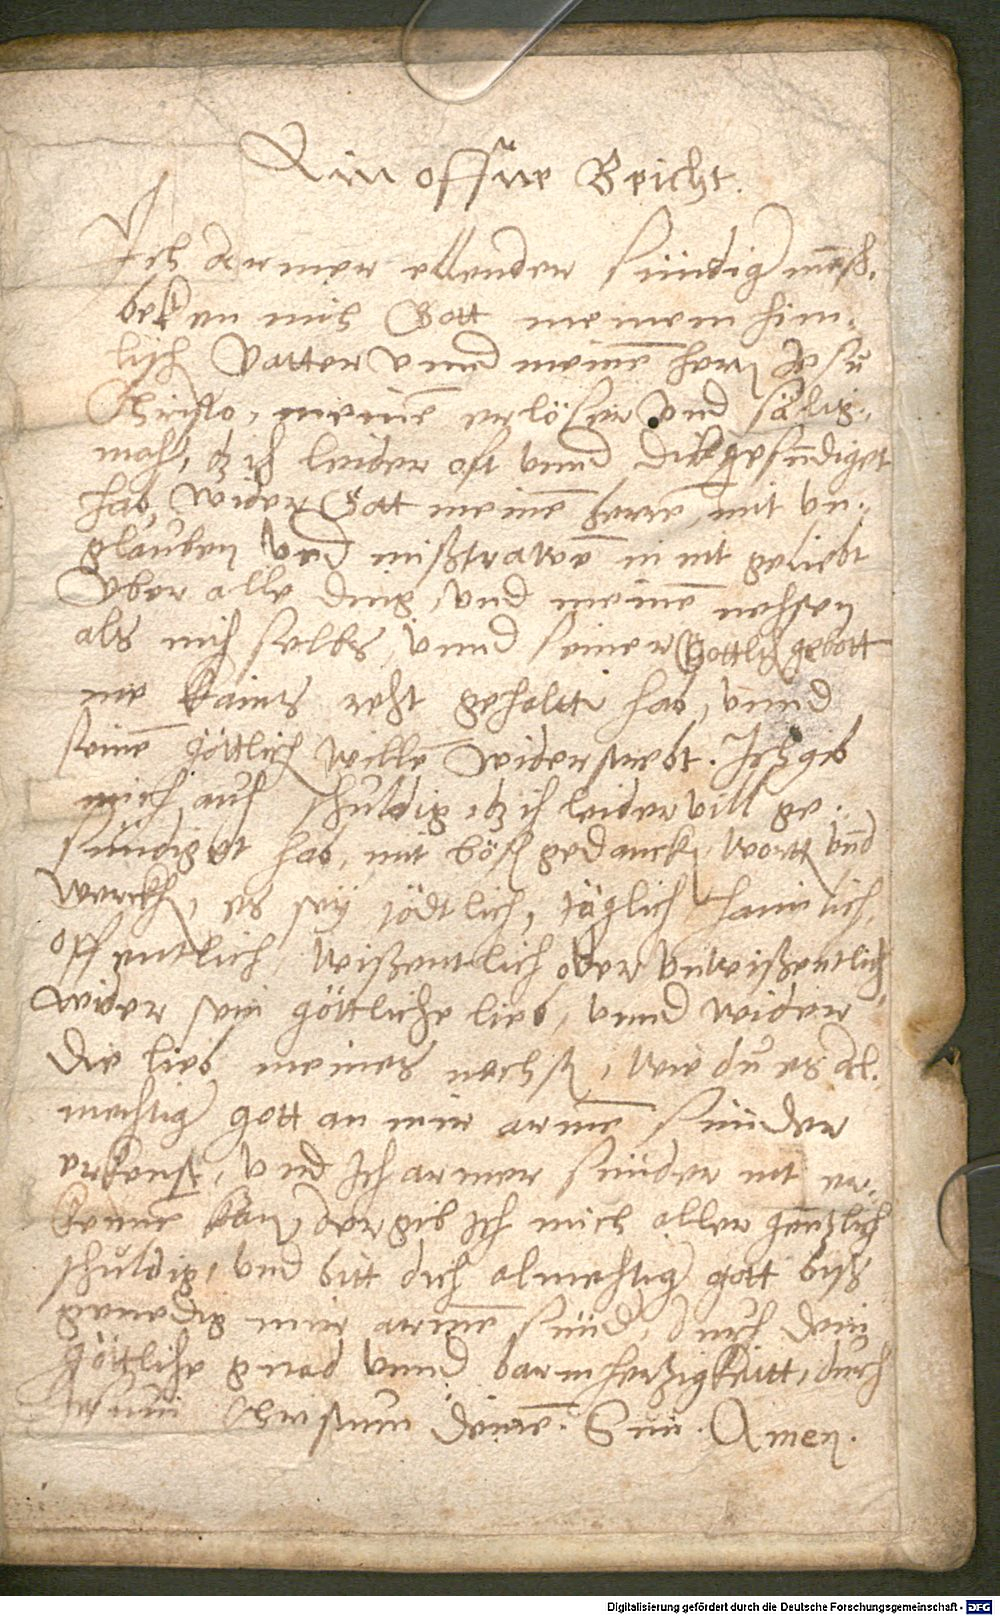 Ain offne Beicht.
Ich Armer ellender sündig mēsch.
beken mich Gott meinem him-
lisch Vatter vnnd meinē herrn Jesu
Christo, meinē erlöser vnd sälig-
mach, dz ich leider oft vnnd dikh gesündiget
hab, wider Gott meinē herrē, mit vn-
glauben vnd mißtrawē in nit geliebt
Vber alle ding, vnd meinē nehsten
als mich selbs, vnnd seiner Gottlich gebott
nie kains reht gehaltē hab, vnnd
seinē göttlich willē widerstrebt. Ich gib
mich auch schuldig, dz ich leider vill ge-
sündiget hab, mit bösē gedanckn, wortn vnd
werckhn, es sey tödtlich, täglich haimlich,
offentlich, wißentlich oder vnwißentlich
wider sein göttliche lieb, vnnd wider
die lieb meines nechstn, wie du es Al-
mechtig gott an mir armē sünder
erkenst, vnd Ich armer sünder nit er-
kenne kan, der gib Ich mich aller gentzlich
schuldig, vnd bitt dich almehtig gott biß
genedig mir armē sünd, durch dein
göttliche gnad vnnd barmhertzigkeitt, durch
Jesum Christum deinē. Sun. Amen.
Digitalisierung gefördert durch die Deutsche Forschungsgemeinschaft - DFG